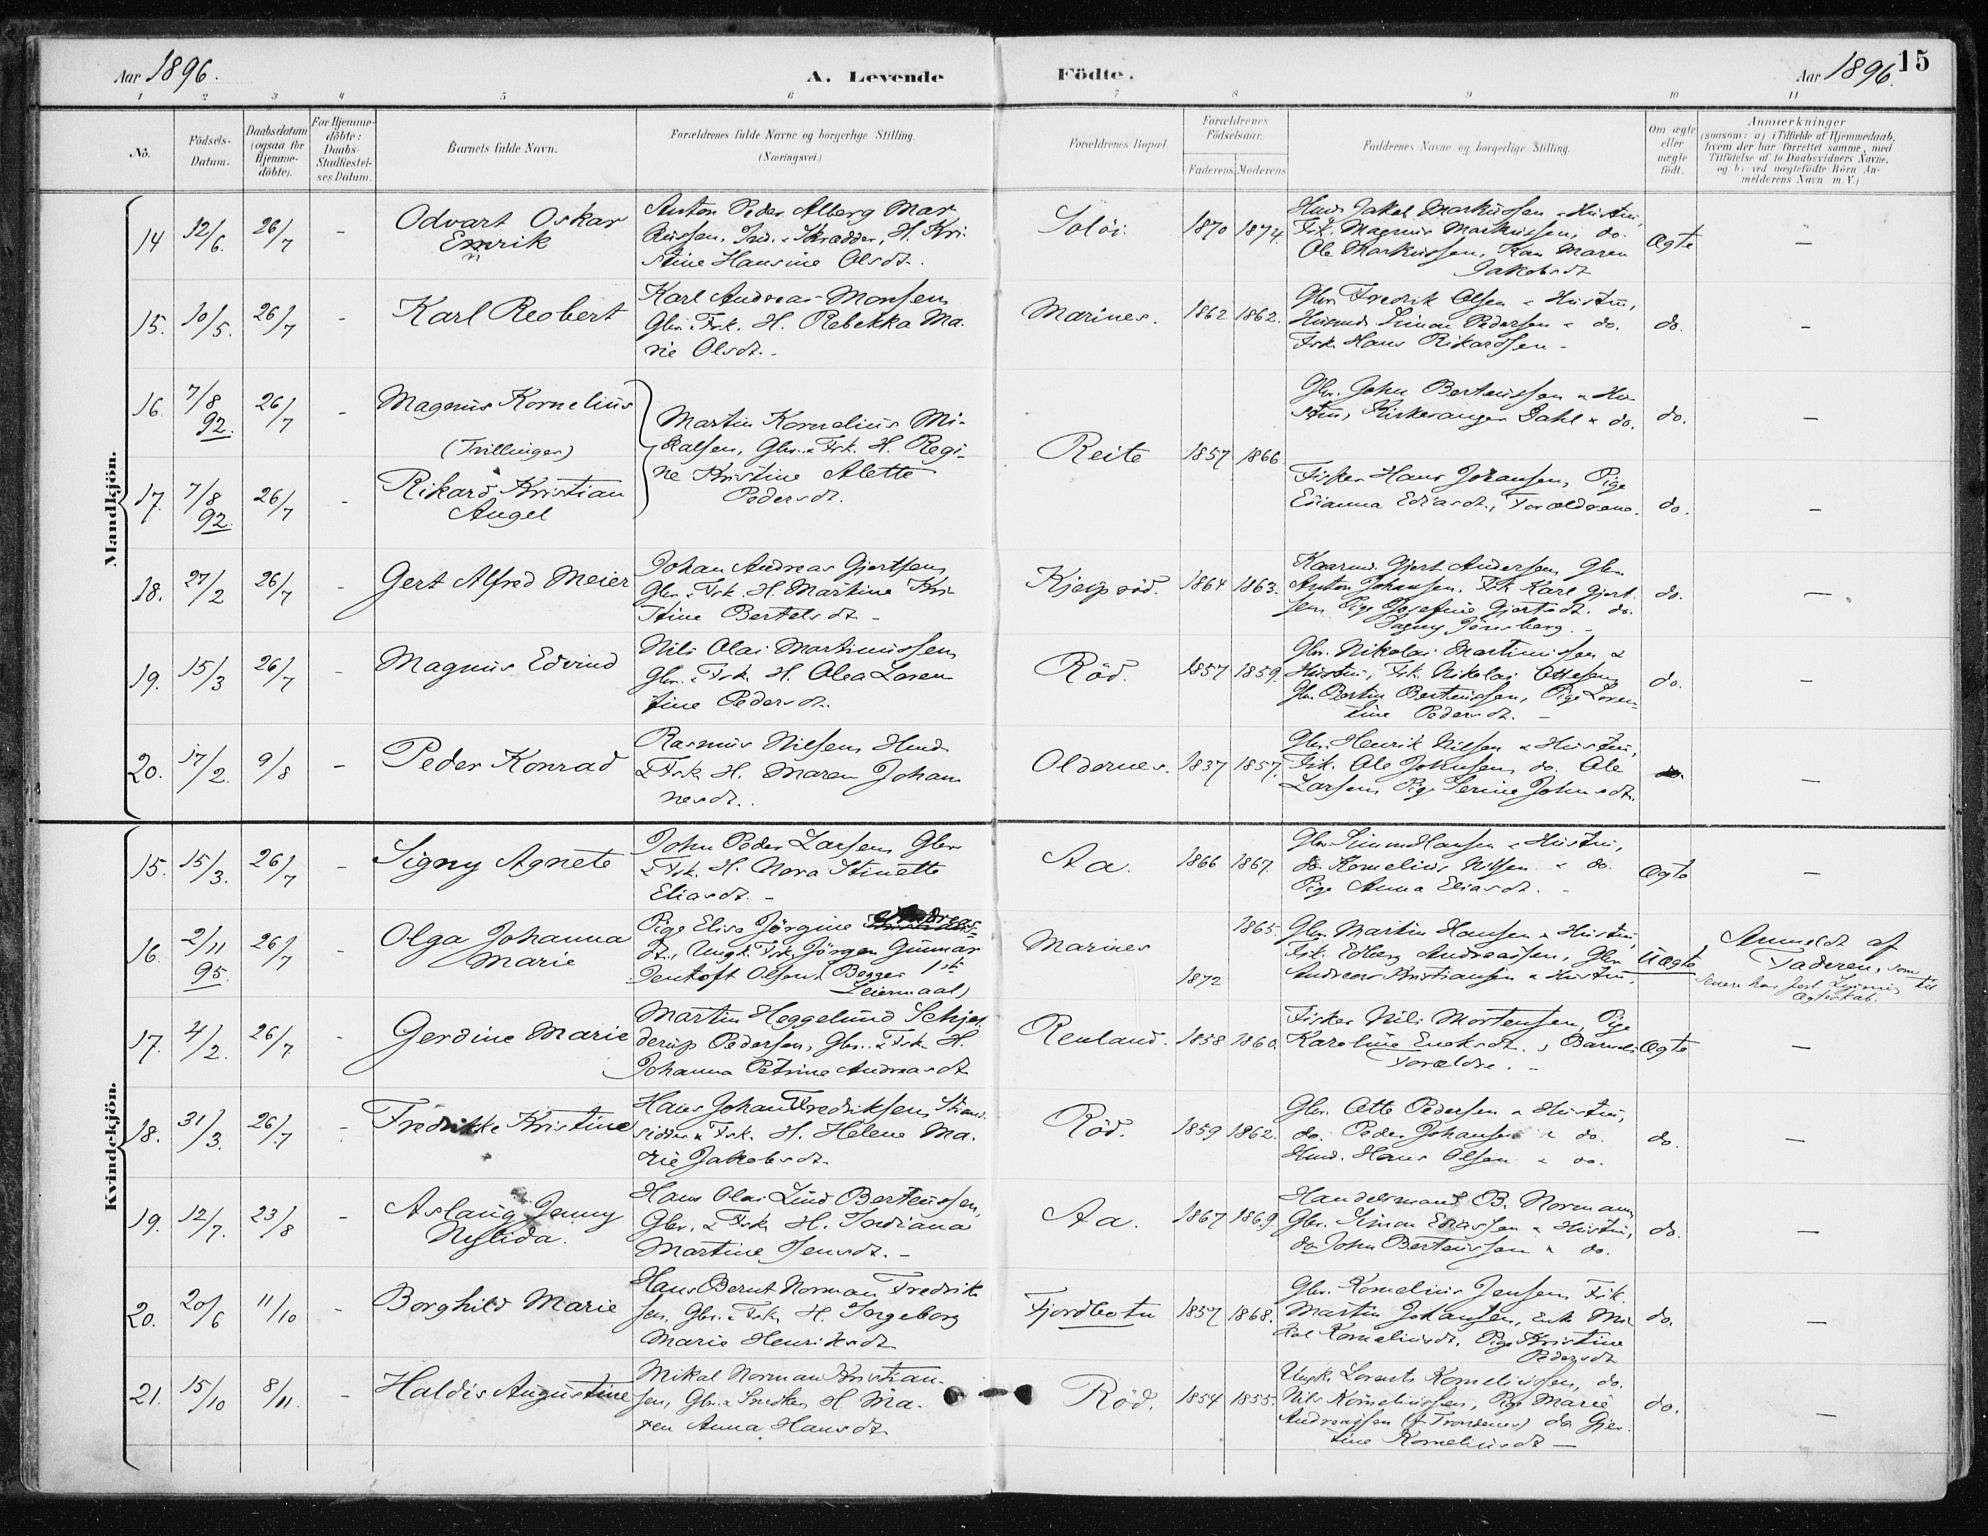 Aar 1896. A. Levende Födte. Aar 1896. 15
1 2 3 4 5 6 7 8 9 10 11
No. Födsels-Datum. Daabsdatum (ogsaa for Hjemme-döbte). For Hjemme-döbte: Daabs-Stadfæstel-ses Datum. Barnets fulde Navn. Forældrenes fulde Navne og borgerlige Stilling. (Næringsvei.) Forældrenes Bopæl. Forældrenes Födselsaar. Faderens. Moderens. Faddernes Navne og borgerlige Stilling. Om ægte eller uægte födt. Anmærkninger (saasom: a) i Tilfælde af Hjemmedaab, hvem der har forrettet samme, med Tilföielse af to Daabsvidners Navne, og b) ved uægtefödte Börn Anmelderens Navn m. V.)
Mandkjön.
14 12/6. 26/7 - Odvart Oskar Enrik
Anton Peder Alberg Mar
kussen, Ind. & Skrædder, H. Kri
stine Hansine Olsdt.
Solöi. 1870 1874.
Husm. Jakob Markussen & Hustru,
Fsk. Magnus Markussen, do.
Ole Markussen, Kone Maren
Jakobsdt.
Ægte -
15. 10/5. 26/7 - Karl Reobert
Karl Andreas Monsen
Gbr. & Fsk. H. Rebekka Ma-
rie Olsdt. -
Marines. 1862 1862.
Gbr. Fredrik Olsen & Hustru,
Husmd. Simon Pedersen & do.
Fsk. Hans Rikardsen -
do. -
16. 7/8 92. 26/7 - Magnus Kornelius
(Tvillinger)
17. 7/8 92. 26/7 - Rikard Kristian
Angel
Martin Kornelius Mi-
kalsen, Gbr. & Fsk. H. Regi-
ne Kristine Alette
Pedersdt.
Reite 1857 1866
Gbr. John Berteussen & Hu-
stru, Kirkesanger Dahl & do.
do. -
Fisker Hans Johansen, Pige
Edianna Ediasdt., Forældrene.
do. -
18. 27/2 26/7 - Gert Alfred Meier
Johan Andreas Gjertsen
Gbr. & Fsk. H. Martine Kri-
stine Bertelsdt -
Kjeipröd. 1864 1863.
Kaarmd. Gjert Andersen, Gbr.
Anton Johansen, Fsk Karl Gjert-
sen, Pige Josefine Gjertsdt. do.
Dagny Jönsberg. -
do. -
19. 15/3 26/7 - Magnus Edvind
Nils Olai Martinussen
Gbr. & Fsk. H. Olea Loren
tine Pedersdt.
Röd. 1857 1859.
Gbr. Nikolai Martinussen &
Hustru, Fsk. Nikolai Ottesen,
Gbr. Bertin Berteussen, Pige Loren-
tine Pedersdt. -
do. -
20. 17/2. 9/8 - Peder Konrad
Rasmus Nilsen Husmd
& Fsk. H. Maren Johan
nesdt..
Oldernes. 1837 1857.
Gbr. Henrik Nilsen & Hustru,
Fsk. Ole Johnsen, do. Ole
Larsen, Pige Serine Johnsdt.
do. -
Kvindekjön.
15. 15/3. 26/7 - Signy Agnete
John Peder Larsen Gbr
& Fsk. H. Nora Stinette
Eliasdt. -
Aa. 1866 1867.
Gbr. Simon Hansen & Hustru,
do. Kornelius Nilsen & do.
Pige Anna Eliasdt. -
Ægte -
16. 2/11 95. 26/7 - Olga Johanna
Marie
Pige Elise Jörgine Andreas-
dt., Ungk. Fsk. Jörgen Gunnar
Dentoft Olsen, (Begges 1ste
Leiermaal)
Marines 1865. 1872
Gbr. Martin Hansen & Hustru,
Fsk. Edberg Andreassen, Gbr
Andreas Kristiansen & Hustru,
Uægte
Anmeldt af
Faderen, som
senere har faat Lysning til
Ægteskab.
17. 4/2. 26/7 Gerdine Marie
Martin Heggelund Schjel-
derup Pedersen, Gbr. & Fsk H.
Johanna Petrine Andreasdt
Renland. 1858 1860.
Fisker Nils Mortensen, Pige
Karoline Enoksdt., Barnets
Forældre. -
Ægte -
18. 31/3. 26/7. - Fredrikke Kristine
Hans Johan Fredriksen, Strand-
sidder & Fsk. H. Helene Ma-
rie Jakobsdt.
Röd. 1859 1862.
Gbr. Otto Pedersen & Hustru,
do. Peder Johansen & do.
Husmd. Hans Olsen & do.
do. -
19. 12/7. 23/8 - Aslaug Jenny
Nylida.
Hans Olai Lund Berteussen,
Gbr. & Fsk. H. Indiana
Martine Jensdt. -
Aa. 1867 1869.
Handelsmand B. Normann,
Gbr. Simon Ediassen & Hustru,
do John Berteussen & do.
do. -
20. 20/6 11/10 - Borghild Marie
Hans Bernt Norman Fredrik
sen, Gbr. & Fsk. H. Ingeborg
Marie Henriksdt
Fjordbotn 1857 1868.
Gbr. Kornelius Jensen, Fsk
Martin Johansen, Enk. Mi-
kal Korneliusdt., Pige Kristine
Pedersdt
do. -
21. 15/10 8/11. - Haldis Augustine
Mikal Norman Kristian-
sen, Gbr. & Snedker, H. Ma-
ren Anna Hansdt
Röd. 1854 1855.
Ungk. Lorents Korneliussen, do.
Nils Korneliussen, Pige Marie
Andreassen (fr Trondenes) do Gjer-
tine Korneliusdt -
do. -